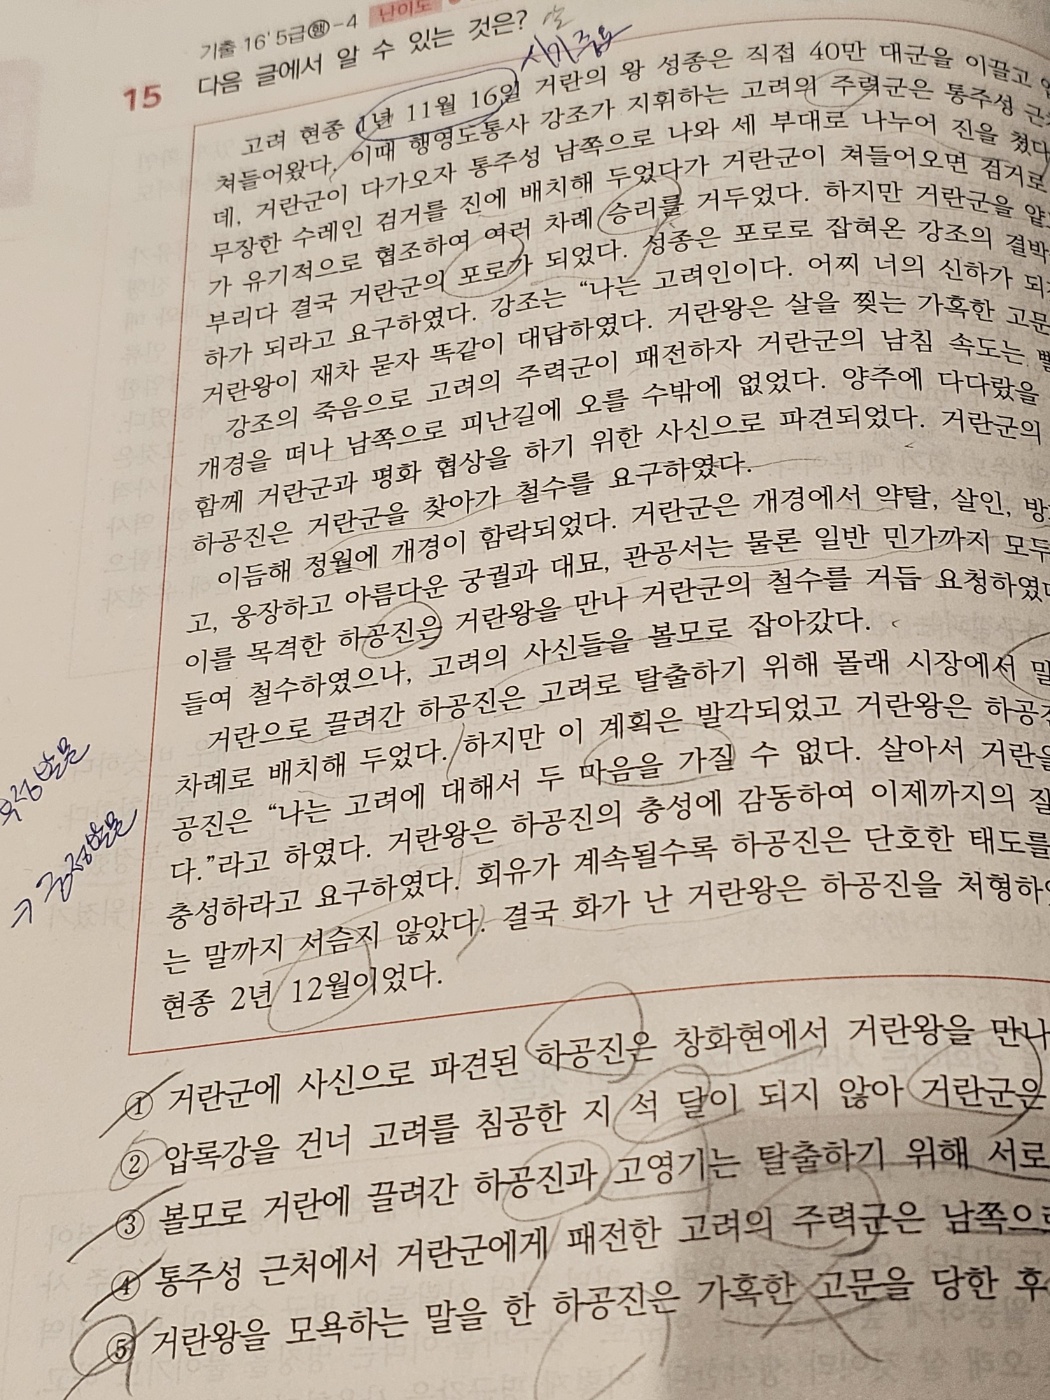 기출 16' 5급㉻-4 난이도
15 다음 글에서 알 수 있는 것은?
고려 현종 1년 11월 16일 거란의 왕 성종은 직접 40만 대군을 이끌고
쳐들어왔다. 이때 행영도통사 강조가 지휘하는 고려의 주력군은 통주성
데, 거란군이 다가오자 통주성 남쪽으로 나와 세 부대로 나누어 진을 쳤다
무장한 수레인 검거를 진에 배치해 두었다가 거란군이 쳐들어오면 검거로
가 유기적으로 협조하여 여러 차례 승리를 거두었다. 하지만 거란군을
부리다 결국 거란군의 포로가 되었다. 성종은 포로로 잡혀온 강조의 결박
하가 되라고 요구하였다. 강조는 “나는 고려인이다. 어찌 너의 신하가
거란왕이 재차 묻자 똑같이 대답하였다. 거란왕은 살을 찢는 가혹한 고문
강조의 죽음으로 고려의 주력군이 패전하자 거란군의 남침 속도는
개경을 떠나 남쪽으로 피난길에 오를 수밖에 없었다. 양주에 다다랐을
함께 거란군과 평화 협상을 하기 위한 사신으로 파견되었다. 거란군의
하공진은 거란군을 찾아가 철수를 요구하였다.
이듬해 정월에 개경이 함락되었다. 거란군은 개경에서 약탈, 살인,
고, 웅장하고 아름다운 궁궐과 대묘, 관공서는 물론 일반 민가까지 모두
이를 목격한 하공진은 거란왕을 만나 거란군의 철수를 거듭 요청하였다
들여 철수하였으나, 고려의 사신들을 볼모로 잡아갔다.
거란으로 끌려간 하공진은 고려로 탈출하기 위해 몰래 시장에서
차례로 배치해 두었다. 하지만 이 계획은 발각되었고 거란왕은 하공
공진은 “나는 고려에 대해서 두 마음을 가질 수 없다. 살아서 거란을
다.”라고 하였다. 거란왕은 하공진의 충성에 감동하여 이제까지의
충성하라고 요구하였다. 회유가 계속될수록 하공진은 단호한 태도를
는 말까지 서슴지 않았다. 결국 화가 난 거란왕은 하공진을 처형하
현종 2년 12월이었다.
① 거란군에 사신으로 파견된 하공진은 창화현에서 거란왕을 만나
② 압록강을 건너 고려를 침공한 지 석 달이 되지 않아 거란군은
③ 볼모로 거란에 끌려간 하공진과 고영기는 탈출하기 위해 서로
④ 통주성 근처에서 거란군에게 패전한 고려의 주력군은 남쪽으로
⑤ 거란왕을 모욕하는 말을 한 하공진은 가혹한 고문을 당한 후